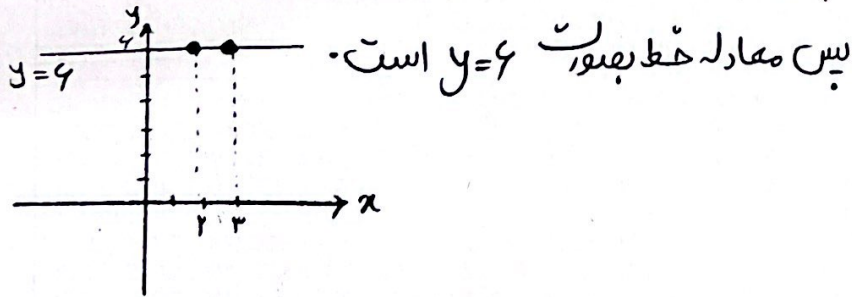 پس معادله خط بصورت y=۶ است.
y
۶
y=۶
x
۲ ۳